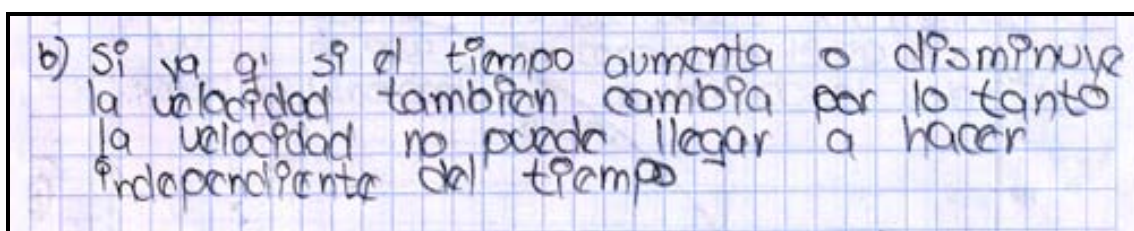 b) Si ya q' si el tiempo aumenta o disminuye
la velocidad tambien cambia por lo tanto
la velocidad no puede llegar a hacer
independiente del tiempo